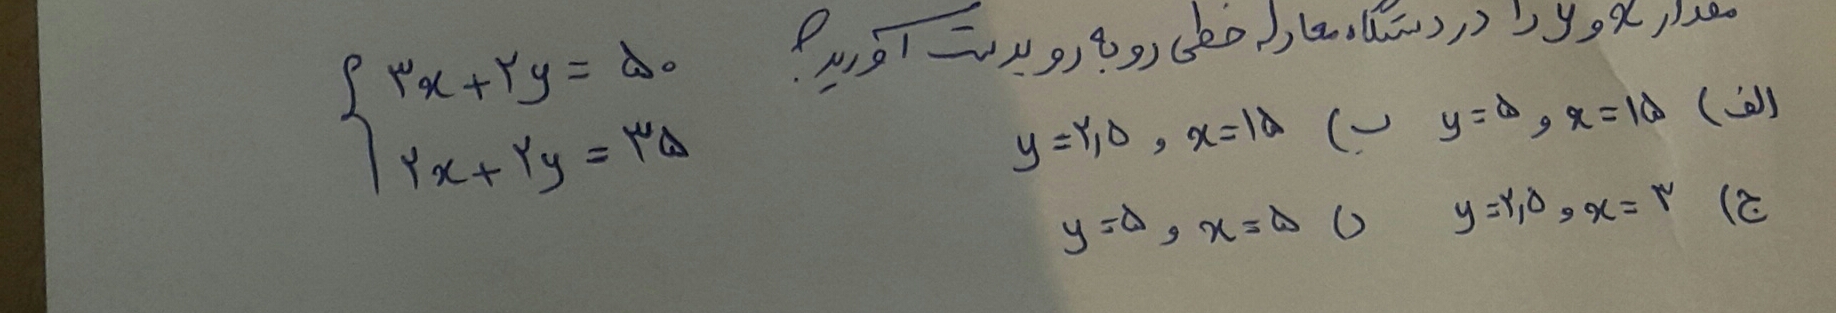 مقدار x و y را در دستگاه معادله خطی روبه رو بدست آورید؟
{ ۳x+۲y = ۵۰
۲x+۲y = ۳۵
الف) x=۱۵ و y=۵ ب) x=۱۵ و y=۲٫۵
ج) x=۳ و y=۲٫۵ د) x=۵ و y=۵